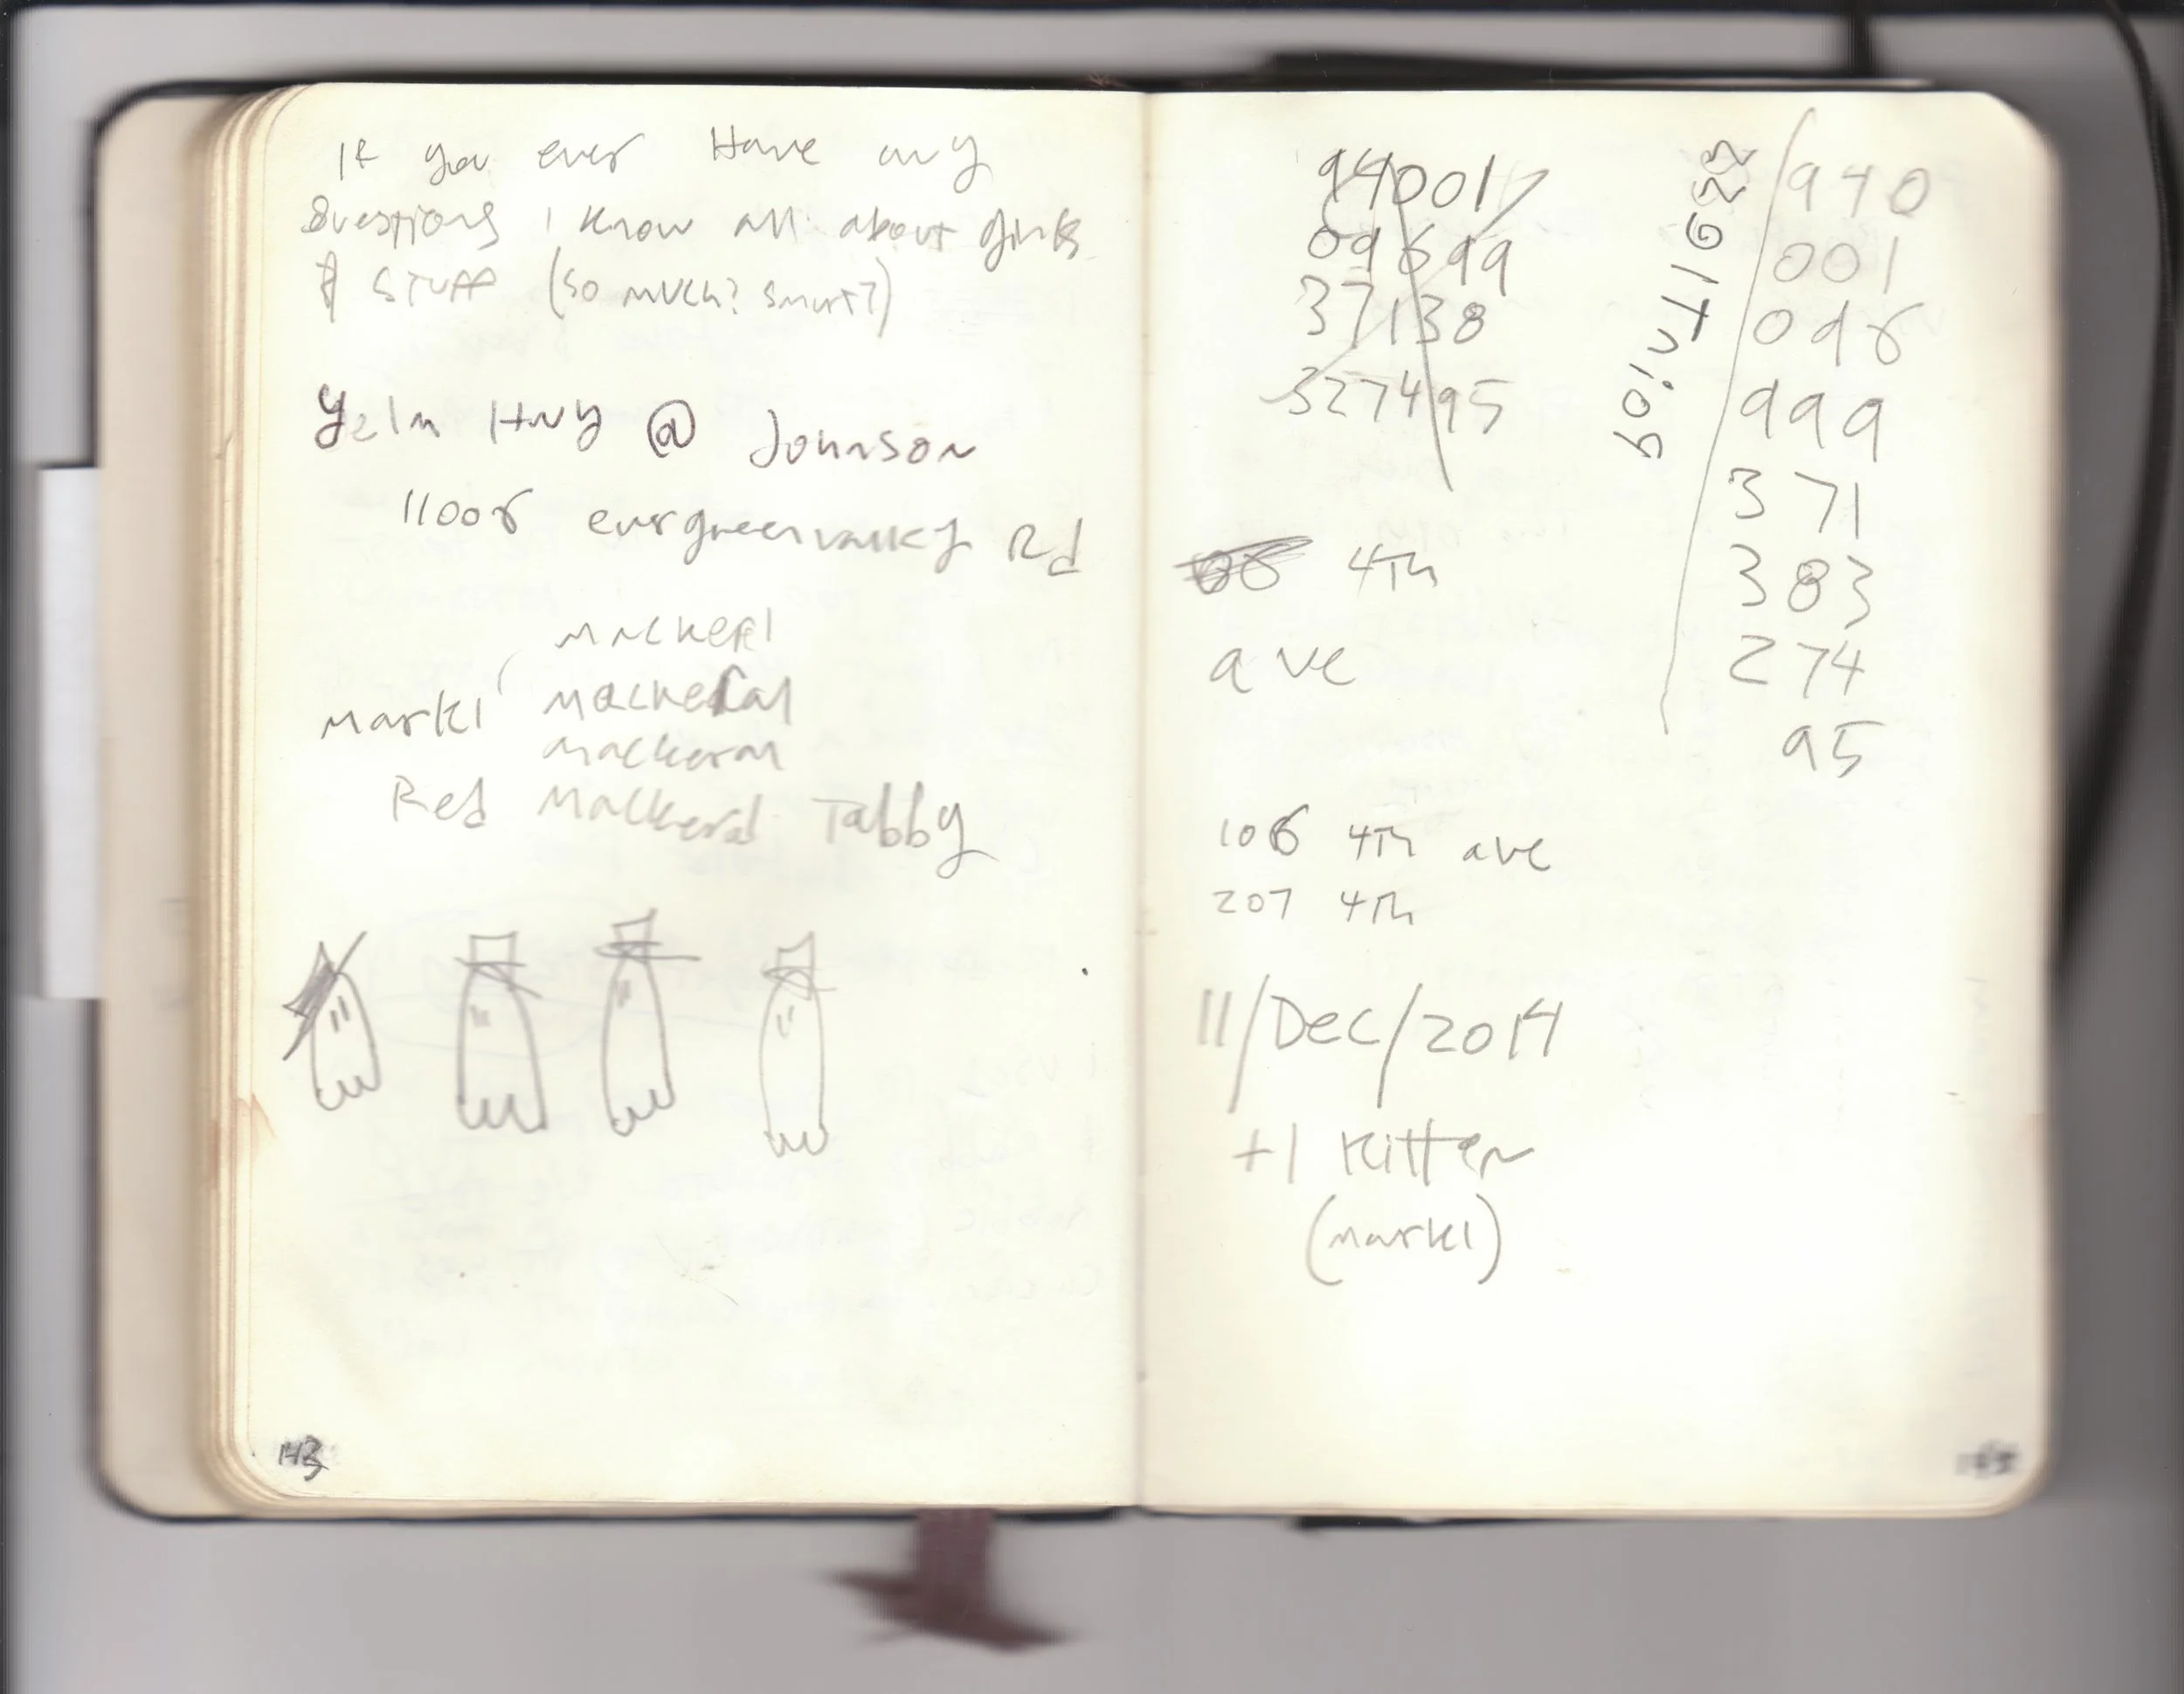 If you ever Have any
Questions I know all about girls
& STUFF (so much? smart?)
Yelm HWY @ Johnson
11006 evergreenvalley Rd
mackerl
Markl mackeral
mackeral
Red Mackeral Tabby
143
94001
09699
37138
327495
4th
ave
106 4th ave
207 4th
11/Dec/2014
+1 kitten
(markl)
940
001
096
999
371
383
274
95